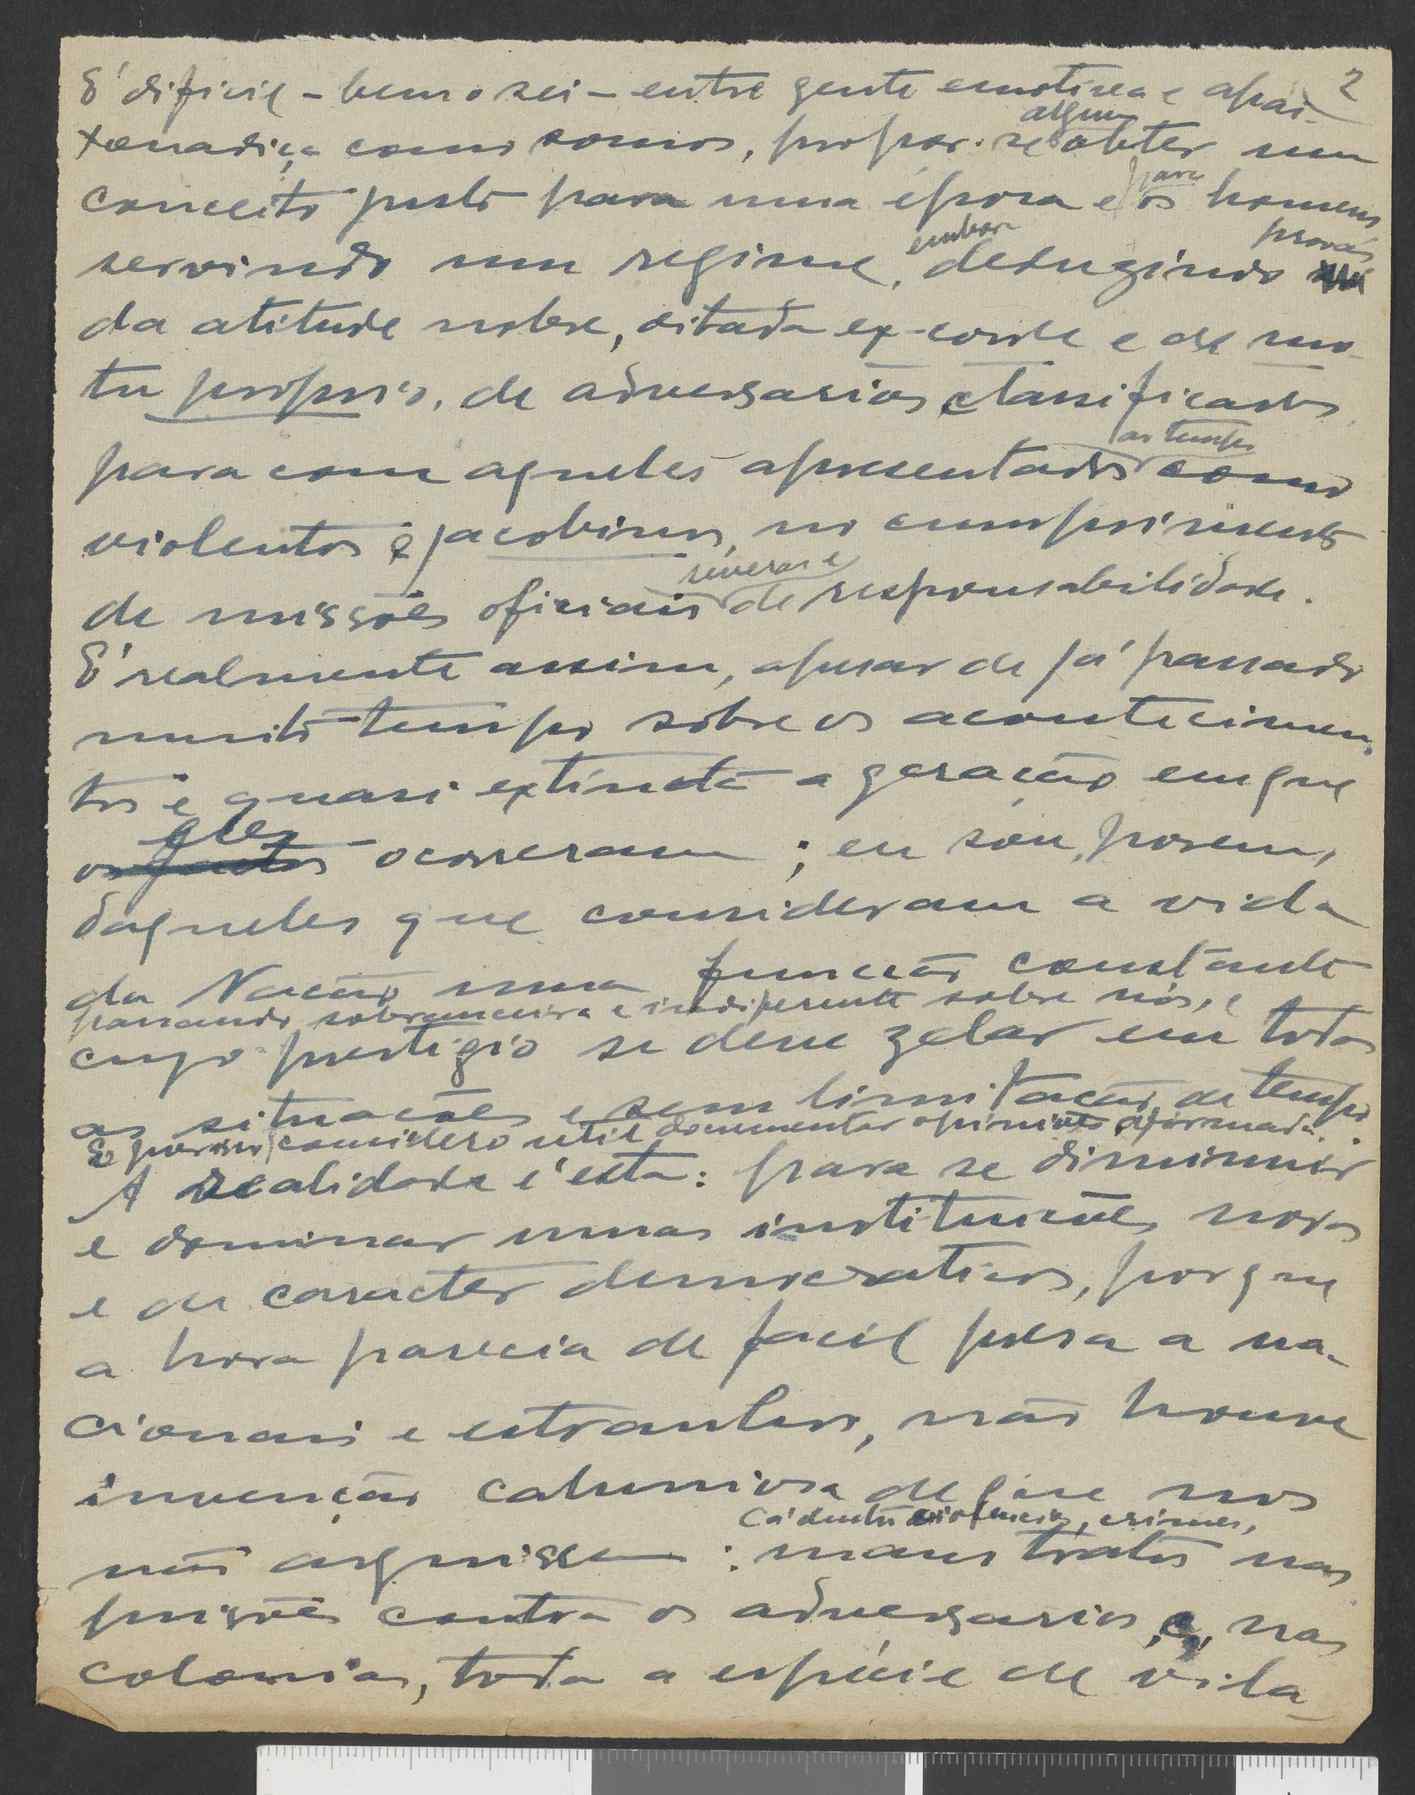 2
E' dificil - bem o sei - entre gente emotiva e apai-
xonadiça como somos, propor-se alguem obter um
conceito justo para uma época e para os homens
servindo um regime, embora deduzindo provas
da atitude nobre, ditada ex-corde e de mo-
tu proprio, de adversarios classificados,
para com aqueles apresentados ao tempo como
violentos e jacobinos, no cumprimento
de missões oficiais severas e de responsabilidade.
E' realmente assim, apesar de já passado
muito tempo sobre os acontecimen-
tos e quasi extinta a geração em que
os factos eles ocorreram; eu sou, porem,
daqueles que consideram a vida
da Nação uma função constante
passando sobranceira e indiferente sobre nós, e
cujo prestigio se deve zelar em todas
as situações e sem limitação de tempo.
E por isso considero util documentar opinião afirmada.
A realidade é esta: para se diminuir
e dominar umas instituições novas
e de caracter democratico, porque
a hora parecia de facil presa a na-
cionais e estranhos, não houve
invenção caluniosa de que nos
não arguissem: Cá dentro violencias, crimes, maus tratos nas
prisões contra os adversarios, e, nas
colonias, toda a espécie de vila-